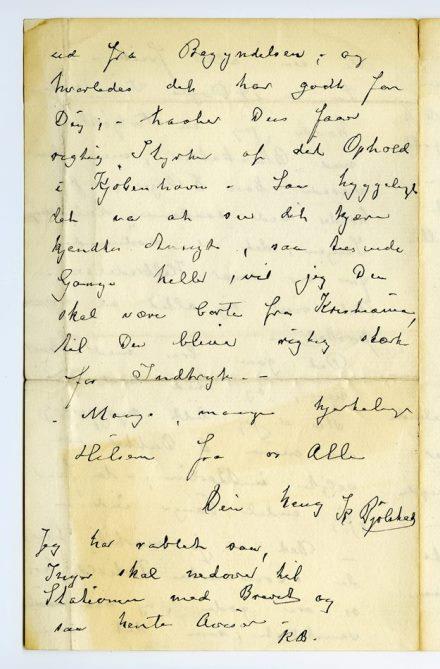 ud fra Begyndelsen, og
hvorledes det har godt for
Dig, - haaber Du faar
rigtig Styrke af det Ophold
i Kjøbenhavn - Saa hyggeligt
det var at see dit kjære
kjendte Ansigt, saa
Gange heller, vil jeg Du
skal være borte fra Kristiania,
til Du bliver rigtig stærk
for Indtryk. -
- Mange, mange hjertelige
Hilsen fra os Alle
Din heng K.
Jeg har rablet saa,
Inga skal nedover til
Stationen med Brevet og
saa hente Aviser
KB.